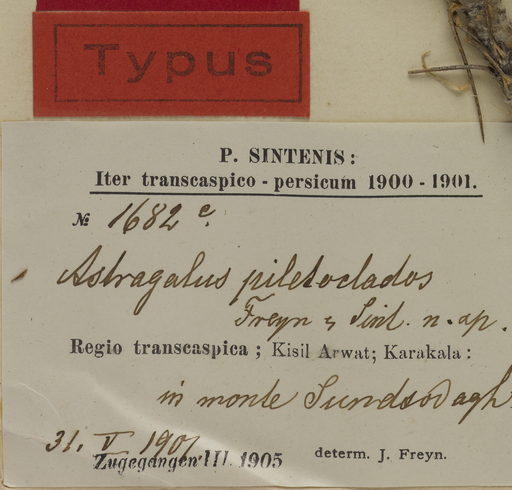 Typus
P. SINTENIS:
Iter transcaspico-persicum 1900-1901.
№ 1682 c.
Astragalus piletoclados
Freyn & Sint. n. sp.
Regio transcaspica; Kisil Arwat; Karakala:
in monte Sundsodagh
31. V. 1901
Zugegangen III. 1905 determ. J. Freyn.